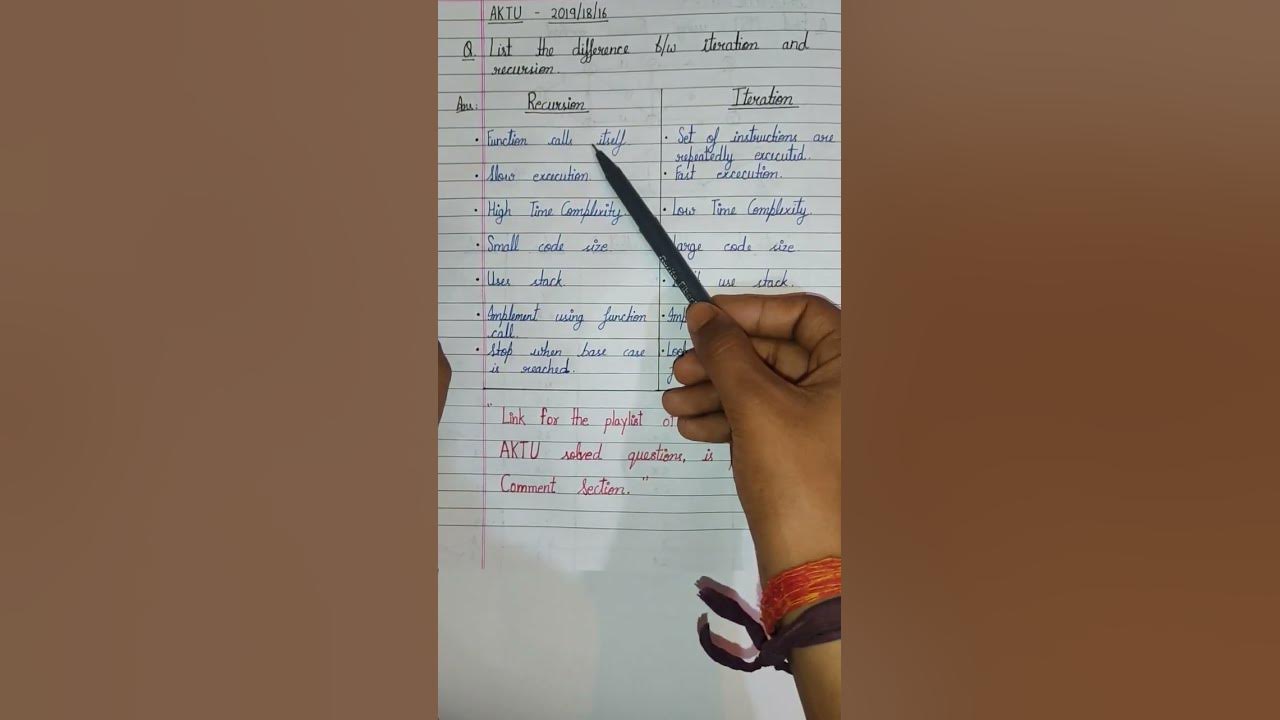 AKTU - 2019/18/16
Q. List the difference b/w iteration and
recursion.
Ans: Recursion Iteration
• Function calls itself. • Set of instructions are
repeatedly executed.
• Slow execution. • Fast excecution.
• High Time Complexity. • Low Time Complexity.
• Small code size. Large code size.
• Uses stack. • use stack.
• Implement using function •
call.
• Stop when base case •
is reached.
" Link for the playlist of
AKTU solved questions, is
Comment Section. "